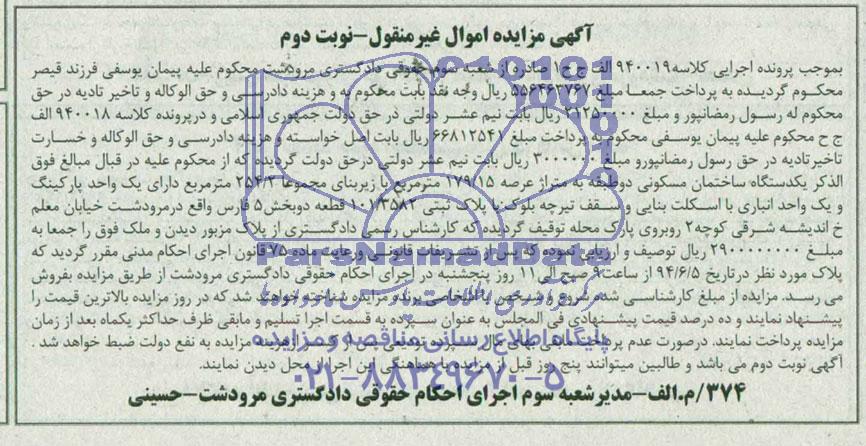 آگهی مزایده اموال غیرمنقول-نوبت دوم
بموجب پرونده اجرایی کلاسه ۹۴۰۰۱۹ الف ج ح ۱ صادره از شعبه سوم حقوقی دادگستری مرودشت محکوم علیه پیمان یوسفی فرزند قیصر
محکوم گردیده به پرداخت جمعا مبلغ ۵۵۶۴۶۳۷۶۷ ریال وجه نقد بابت محکوم به و هزینه دادرسی و حق الوکاله و تاخیر تادیه در حق
محکوم له رسول رمضانپور و مبلغ ریال بابت نیم عشر دولتی در حق دولت جمهوری اسلامی و درپرونده کلاسه ۹۴۰۰۱۸ الف
ج ح محکوم علیه پیمان یوسفی محکوم به پرداخت مبلغ ۶۶۸۱۲۵۴۷ ریال بابت اصل خواسته و هزینه دادرسی و حق الوکاله و خسارت
تاخیرتادیه در حق رسول رمضانپورو مبلغ ۳۰۰۰۰۰۰ ریال بابت نیم عشر دولتی درحق دولت گردیده که از محکوم علیه در قبال مبالغ فوق
الذکر یکدستگاه ساختمان مسکونی دوطبقه به متراژ عرصه ۱۷۹/۱۵ مترمربع با زیربنای مجموعا ۲۵۴/۲ مترمربع دارای یک واحد پارکینگ
و یک واحد انباری با اسکلت بنایی و سقف تیرچه بلوک با پلاک ثبتی ۱۰۱/۳۵۸۲ قطعه دوبخش۵ فارس واقع درمرودشت خیابان معلم
خ اندیشه شرقی کوچه۲ روبروی پارک محله توقیف گردیده که کارشناس رسمی دادگستری از پلاک مزبور دیدن و ملک فوق را جمعا به
مبلغ ۲۹۰۰۰۰۰۰۰۰ ریال توصیف و ارزیابی نموده که پس از تشریفات قانونی ورعایت ماده ۷۵ قانون اجرای احکام مدنی مقرر گردید که
پلاک مورد نظر درتاریخ ۹۴/۶/۵ از ساعت۹ صبح الی۱۱ روز پنجشنبه در اجرای احکام حقوقی دادگستری مرودشت از طریق مزایده بفروش
می رسد. مزایده از مبلغ کارشناسی شده شروع و شخص یا اشخاصی برنده مزایده شناخته خواهند شد که در روز مزایده بالاترین قیمت را
پیشنهاد نمایند و ده درصد قیمت پیشنهادی فی المجلس به عنوان سپرده به قسمت اجرا تسلیم و مابقی ظرف حداکثر یکماه بعد از زمان
مزایده پرداخت نمایند. درصورت عدم پرداخت مابقی بهای پس از کسر هزینه مزایده به نفع دولت ضبط خواهد شد .
آگهی نوبت دوم می باشد و طالبین میتوانند پنج روز قبل از مزایده با هماهنگی این اجرا از محل دیدن نمایند.
۳۷۴/م.الف-مدیرشعبه سوم اجرای احکام حقوقی دادگستری مرودشت-حسینی
ParsNamadData
پایگاه اطلاع رسانی مناقصه و مزایده
۰۲۱-۸۸۳۴۹۶۷۰-۵